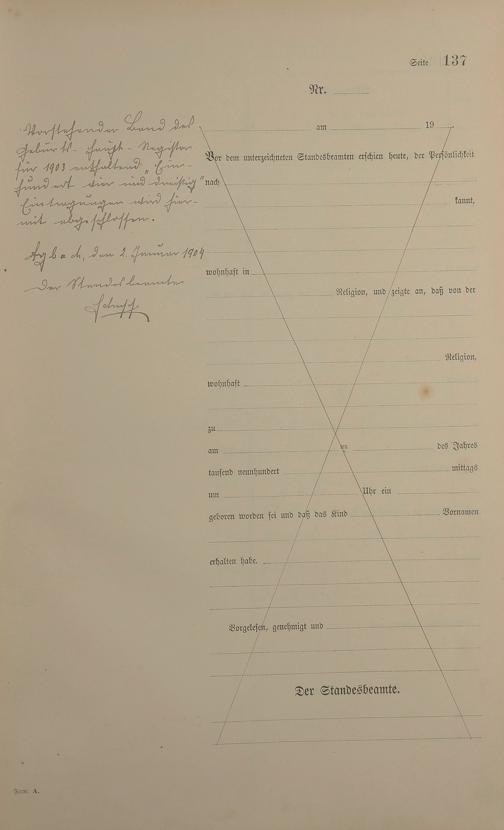 Seite 137
Nr.
am 19
Vor dem unterzeichneten Standesbeamten erschien heute, der Persönlichkeit
nach
kannt,
wohnhaft in
Religion, und zeigte an, daß von der
Religion,
wohnhaft
zu
am des Jahres
tausend neunhundert mittags
um Uhr ein
geboren worden sei und daß das Kind Vornamen
erhalten habe.
Vorgelesen, genehmigt und
Der Standesbeamte.
Vorstehender Band des
Geburts-Haupt-Register
für 1903 enthaltend „Ein-
hundert vier und dreißig"
Eintragungen wird hier-
mit abgeschlossen.
den 2. Januar 1904
Der Standesbeamte
Form. A.